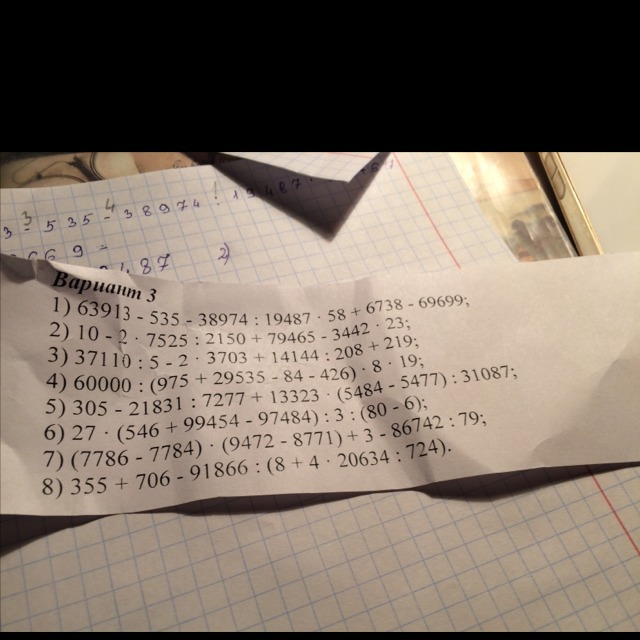 3 - 535 - 38974 : 19487 ·
669 =
487 2)
Вариант 3
1) 63913 - 535 - 38974 : 19487 · 58 + 6738 - 69699;
2) 10 - 2 · 7525 : 2150 + 79465 - 3442 · 23;
3) 37110 : 5 - 2 · 3703 + 14144 : 208 + 219;
4) 60000 : (975 + 29535 - 84 - 426) · 8 · 19;
5) 305 - 21831 : 7277 + 13323 · (5484 - 5477) : 31087;
6) 27 · (546 + 99454 - 97484) : 3 : (80 - 6);
7) (7786 - 7784) · (9472 - 8771) + 3 - 86742 : 79;
8) 355 + 706 - 91866 : (8 + 4 · 20634 : 724).